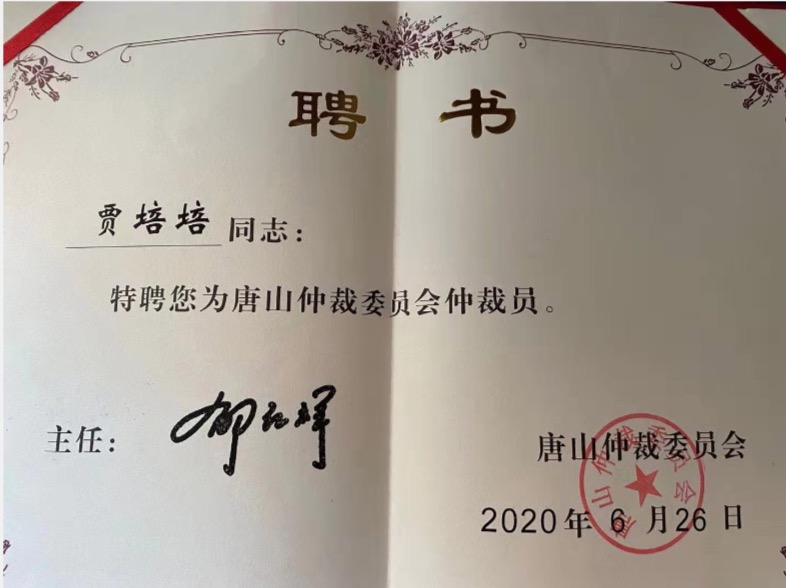 聘书
贾培培同志：
特聘您为唐山仲裁委员会仲裁员。
主任：
唐山仲裁委员会
2020年6月26日
唐山仲裁委员会